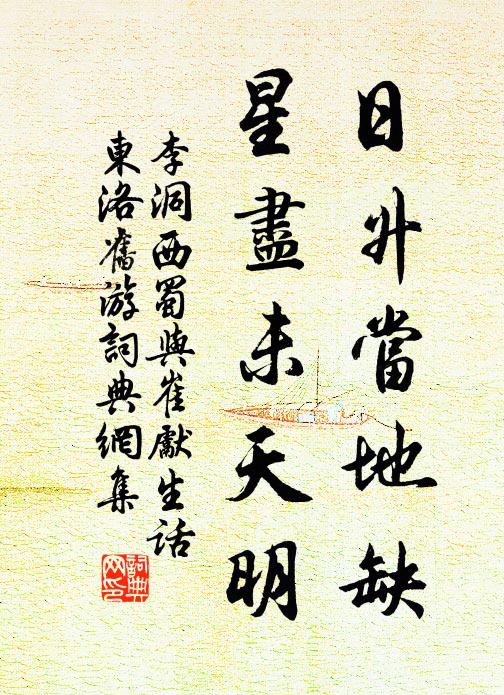 日升當地缺
星盡未天明
李洞西蜀與崔獻生話
東洛舊游詞典網集
詞典
网印